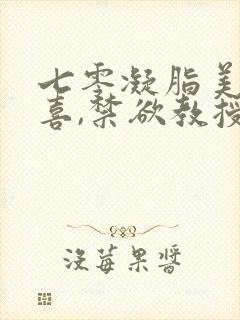 七零凝脂美
喜,禁欲教授
没莓果酱